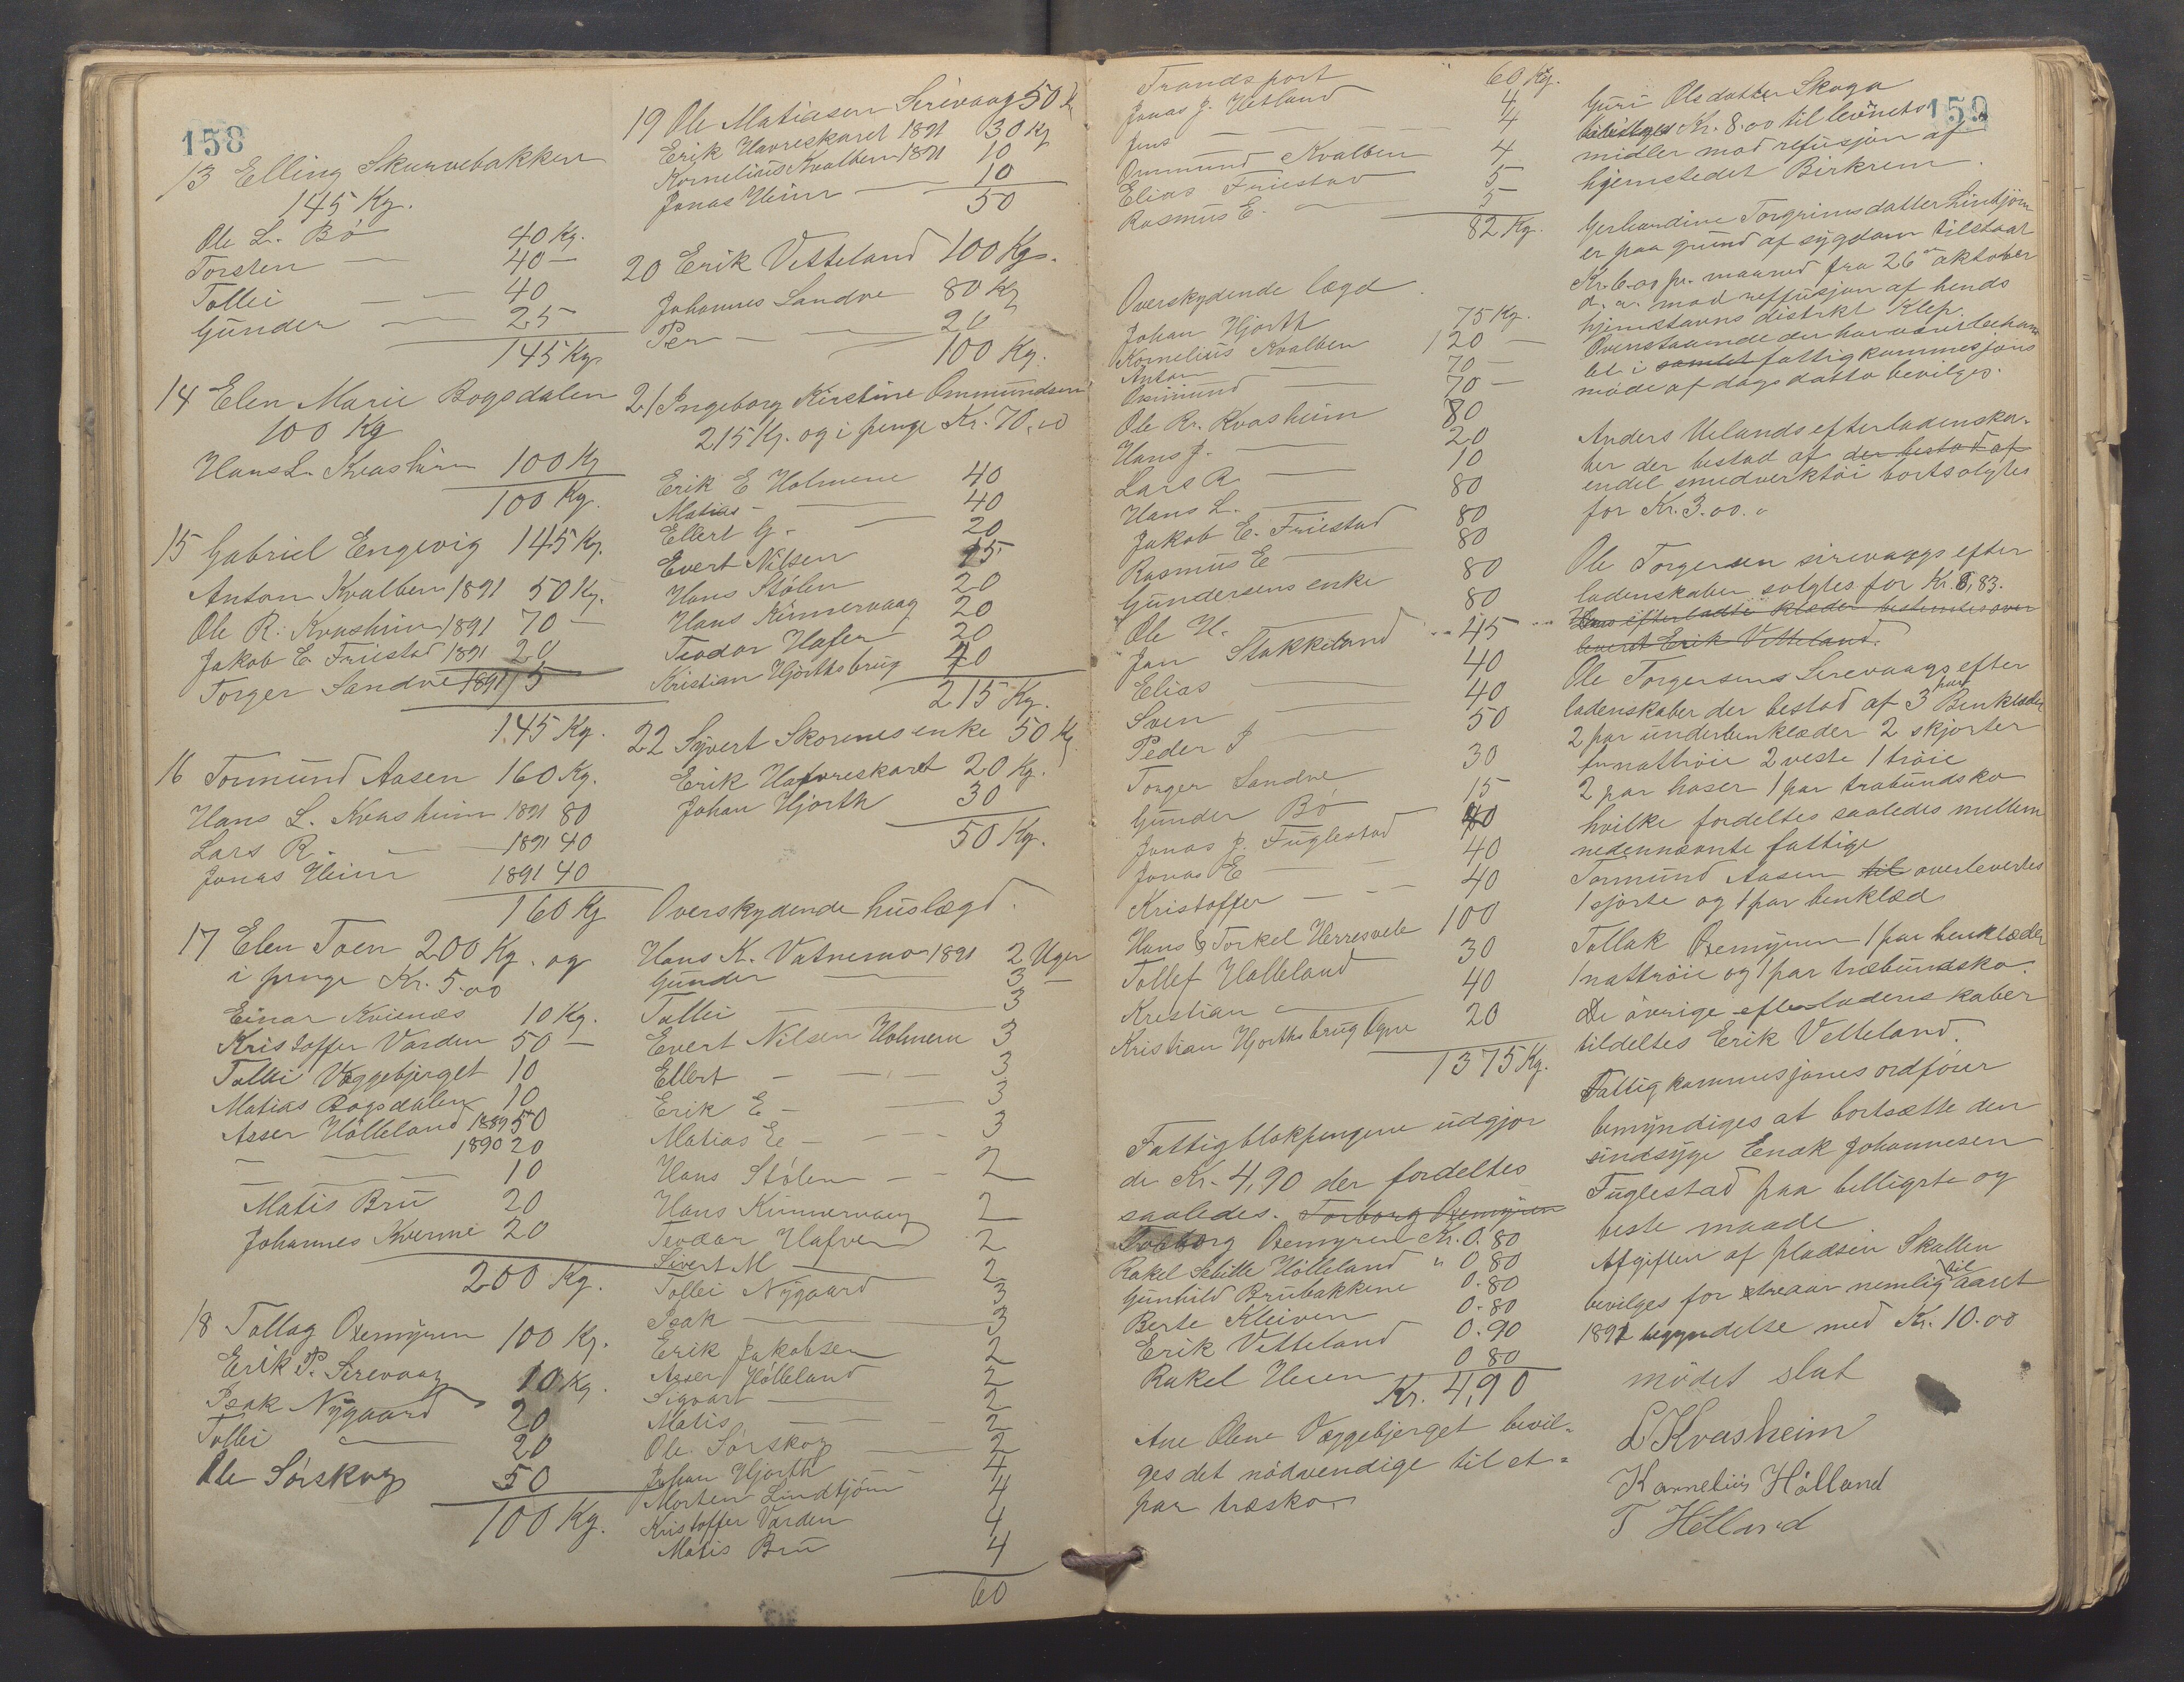 158
13 Elling Skurvebakken
145 Kg.
Ole L. Bö 40 Kg.
Torsten — 40 —
Tollei — — 40
Gunder — 25
145 Kg
14 Elen Marie Bogsdalen
100 Kg
Hans L. Kvashiem 100 Kg
100 Kg.
15 Gabriel Engevig 145 Kg.
Anton Kvalben 1891 50 Kg.
Ole R. Kvashiem 1891 70 —
Jakob E Friestad 1891 20
Torger Sandve 1891 5
145 Kg.
16 Tormund Aasen 160 Kg.
Hans L. Kvasheim 1891 80
Lars R. — 1891 40
Jonas Heim 1891 40
160 Kg
17 Elen Toen 200 Kg. og
i penge Kr. 5.00
Einar Kvisnæs 10 Kg.
Kristoffer Varden 50 —
Tollei Væggebjerget 10
Matias Bogsdalen 10
Asser Hölleland 1889 50
— — 1890 20
— — — 10
Matis Bru 20
Johannes Kverme 20
200 Kg.
18 Tollag Oxemyren 100 Kg.
Erik P. Sirevaag 10 Kg.
Isak Nygaard 20
Tollei — 20
Ole Sörskog 50
100 Kg.
19 Ole Matiasen Sirevaag 50 K
Erik Havreskaret 1891 30 Kg
Kornelius Kvalben 1891 10
Jonas Heim — 10
50
20 Erik Vetteland 100 Kg.
Johannes Sandve 80 Kg
Per — — 20
100 Kg.
21 Ingeborg Kirstine Ommundsen
215 Kg. og i penge Kr. 70.00
Erik E Holmene 40
Matias — — 40
Ellert G. — 20
Evert Nilsen 15
Hans Stölen 20
Hans Kinnervaag 20
Teodor Hafen 20
Kristian Hjorthsbrug 40
215 Kg.
22 Syvert Skorenes enke 50 Kg
Erik Havreskaret 20 Kg.
Johan Hjorth 30
50 Kg.
Overskydende huslægd.
Hans K. Vatnemo 1891 2 Uger
Gunder — 3 —
Tollei — 3
Evert Nilsen Holmene 3
Ellert — — — 3
Erik E — — 3
Matias E — — — 3
Hans Stölen — 2
Hans Kinnervaag 2
Teodor Hafven 2
Sivert M — 2
Tollei Nygaard 3
Isak — 3
Erik Jakobsen 2
Asser Hölleland 2
Sigvart — 2
Matis — — 2
Ole Sörskog — 2
Johan Hjorth — 4
Morten Lindtjörn 4
Kristoffer Varden 4
Matis Bru 4
60
Trandsport 60 Kg.
Jonas J. Hetland 4
Jens — 4
Ommund Kvalben 4
Elias Friestad 5
Rasmus E. — 5
82 Kg.
Overskydende lægd.
Johan Hjorth 75 Kg.
Kornelius Kvalben 120 —
Anton — 70 —
Ommund — 70 —
Ole R. Kvasheim 80
Hans J. — 20
Lars R. — 10
Hans L. — 80
Jakob E. Friestad 80
Rasmus E — 80
Gundersens enke 80
Ole H. — 80
Jan Stokkeland 45
Elias — 40
Sven — 40
Peder J — 50
Torger Sandve 30
Gunder Bö 15
Jonas J. Fuglestad 40
Jonas E — 40
Kristoffer — — — 40
Hans & Torkel Herresvele 100
Tollef Holleland 30
Kristian — 40
Kristian Hjorthsbrug Ogne 20
1375 Kg.
Fattigblokpengene udgjor
de Kr. 4,90 der fordeltes
saaledes. Torborg Oxemyren
Torborg Oxemyren Kr. 0.80
Rakel Sebille Hölleland " 0,80
Gunhild Brubakkene 0.80
Berte Kleiven 0.80
Erik Vetteland 0.90
Rakel Heien 0 80
Kr. 4,90
Ane Olene Væggebjerget bevil-
ges det nödvendige til et
par træsko.
159
Guri Olsdatter Skoga
bevilges Kr. 8.00 til levnets
midler mod refusjon af
hjemstedet Birkrem.
Gerhardine Torgrimsdatter Lintjörn
er paa grund af sygdom tilstaaet
Kr. 6.00 pr. maaned fra 26de oktober
d. a. mod reffusjon af hends
hjemstavns distrikt Klep.
Ovenstaaende der har været behand
let i samlet fattigkommesjons
möde af dags datto bevilges.
Anders Uelands efterladenska-
ber der bestod af der bestod af
endel smedverktöi bortsolgtes
for Kr. 3.00.
Ole Torgersen sirevaags efter
ladenskaber solgtes for Kr. 8,83.
Hans efterladte klæder bestemtes over
leveret Erik Vetteland.
Ole Torgersens Sirevaags efter
ladenskaber der bestod af 3 par Benklæder
2 par underbenklæder 2 skjorter
1 nattröie 2 veste 1 tröie
2 par hoser 1 par træbundsko
hvilke fordeltes saaledes mellem
nedennævnte fattige
Tormund Aasen til overlevertes
1 sjorte og 1 par benklæd
Tollak Oxemyren 1 par benklæder
1 nattröie og 1 par træbundsko.
De övrige efterladenskaber
tildeltes Erik Vetteland.
Fattigkommesjones ordförer
bemyndiges at bortsætte den
sindsyge Enok Johannesen
Fuglestad paa billigste og
beste maade
Afgiften af pladsen Skallen
bevilges for treaar nemlig til aaret
1892 begyndelse med Kr. 10.00
mödet slut
L Kvasheim
Kornelius Hölland
T Hetland